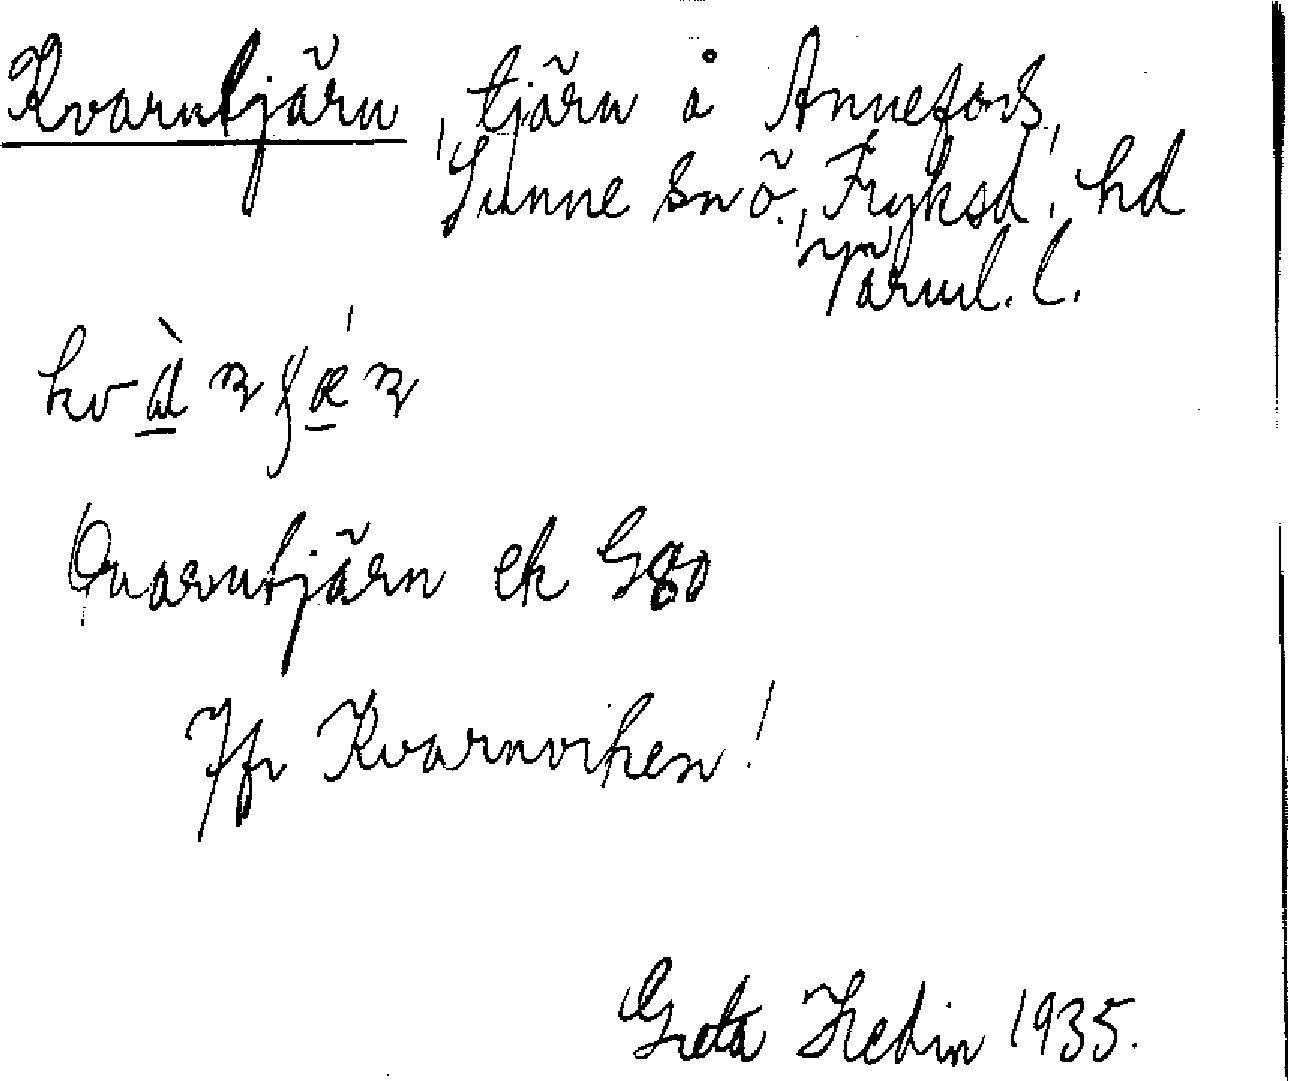 Kvarntjärn, tjärn å Annefors,
Sunne sn ö., Fryksd. hd
Värml. l.
Qvarntjärn ek G80
Jfr Kvarnviken!
Greta Hedin 1935.